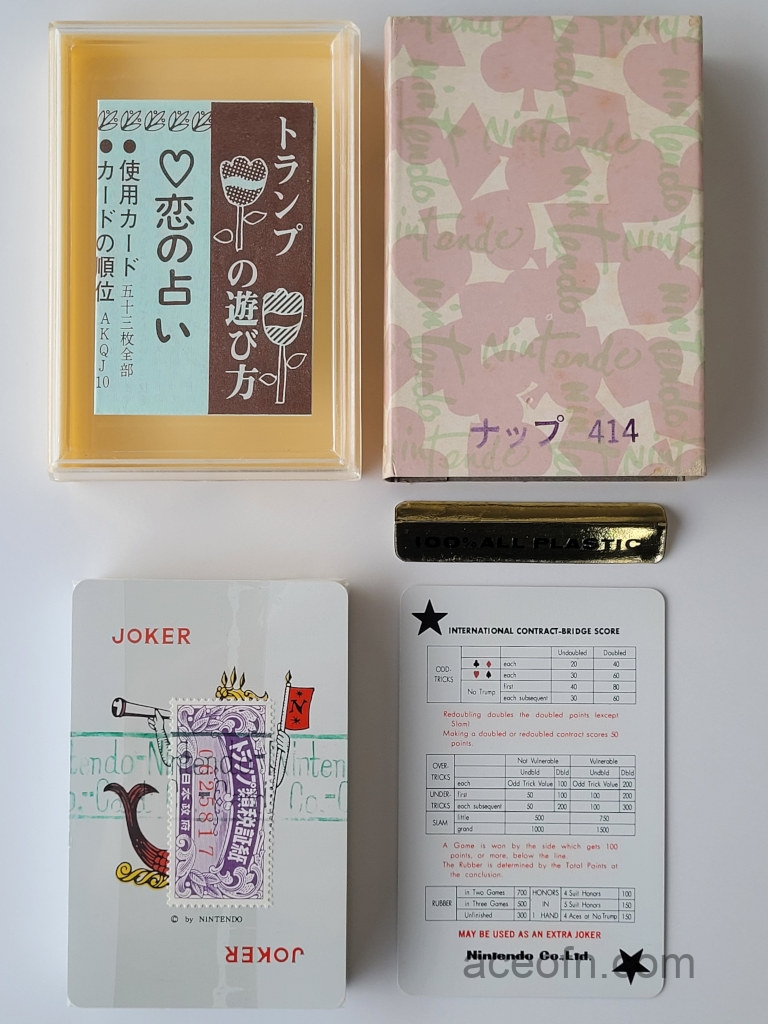 トランプの遊び方
♡恋の占い
●使用カード 五十三枚全部
●カードの順位 AKQJ10
Nintendo
Nintendo
Nintendo
Nintendo
ナップ 414
100% ALL PLASTIC
JOKER
N
トランプ類税証紙
日本政府
0625817
© by NINTENDO
JOKER
INTERNATIONAL CONTRACT-BRIDGE SCORE
Undoubled Doubled
ODD-TRICKS
♣ ♦ each 20 40
♥ ♠ each 30 60
No Trump first 40 80
each subsequent 30 60
Redoubling doubles the doubled points (except
Slam)
Making a doubled or redoubled contract scores 50
points.
Not Vulnerable Vulnerable
Undbld Dbld Undbld Dbld
OVER-TRICKS each Odd Trick Value 100 Odd Trick Value 200
UNDER-TRICKS first 50 100 100 200
each subsequent 50 200 100 300
SLAM little 500 750
grand 1000 1500
A Game is won by the side which gets 100
points, or more, below the line.
The Rubber is determined by the Total Points at
the conclusion.
RUBBER in Two Games 700 HONORS 4 Suit Honors 100
in Three Games 500 IN 5 Suit Honors 150
Unfinished 300 1 HAND 4 Aces at No Trump 150
MAY BE USED AS AN EXTRA JOKER
Nintendo Co.,Ltd.
aceofn.com